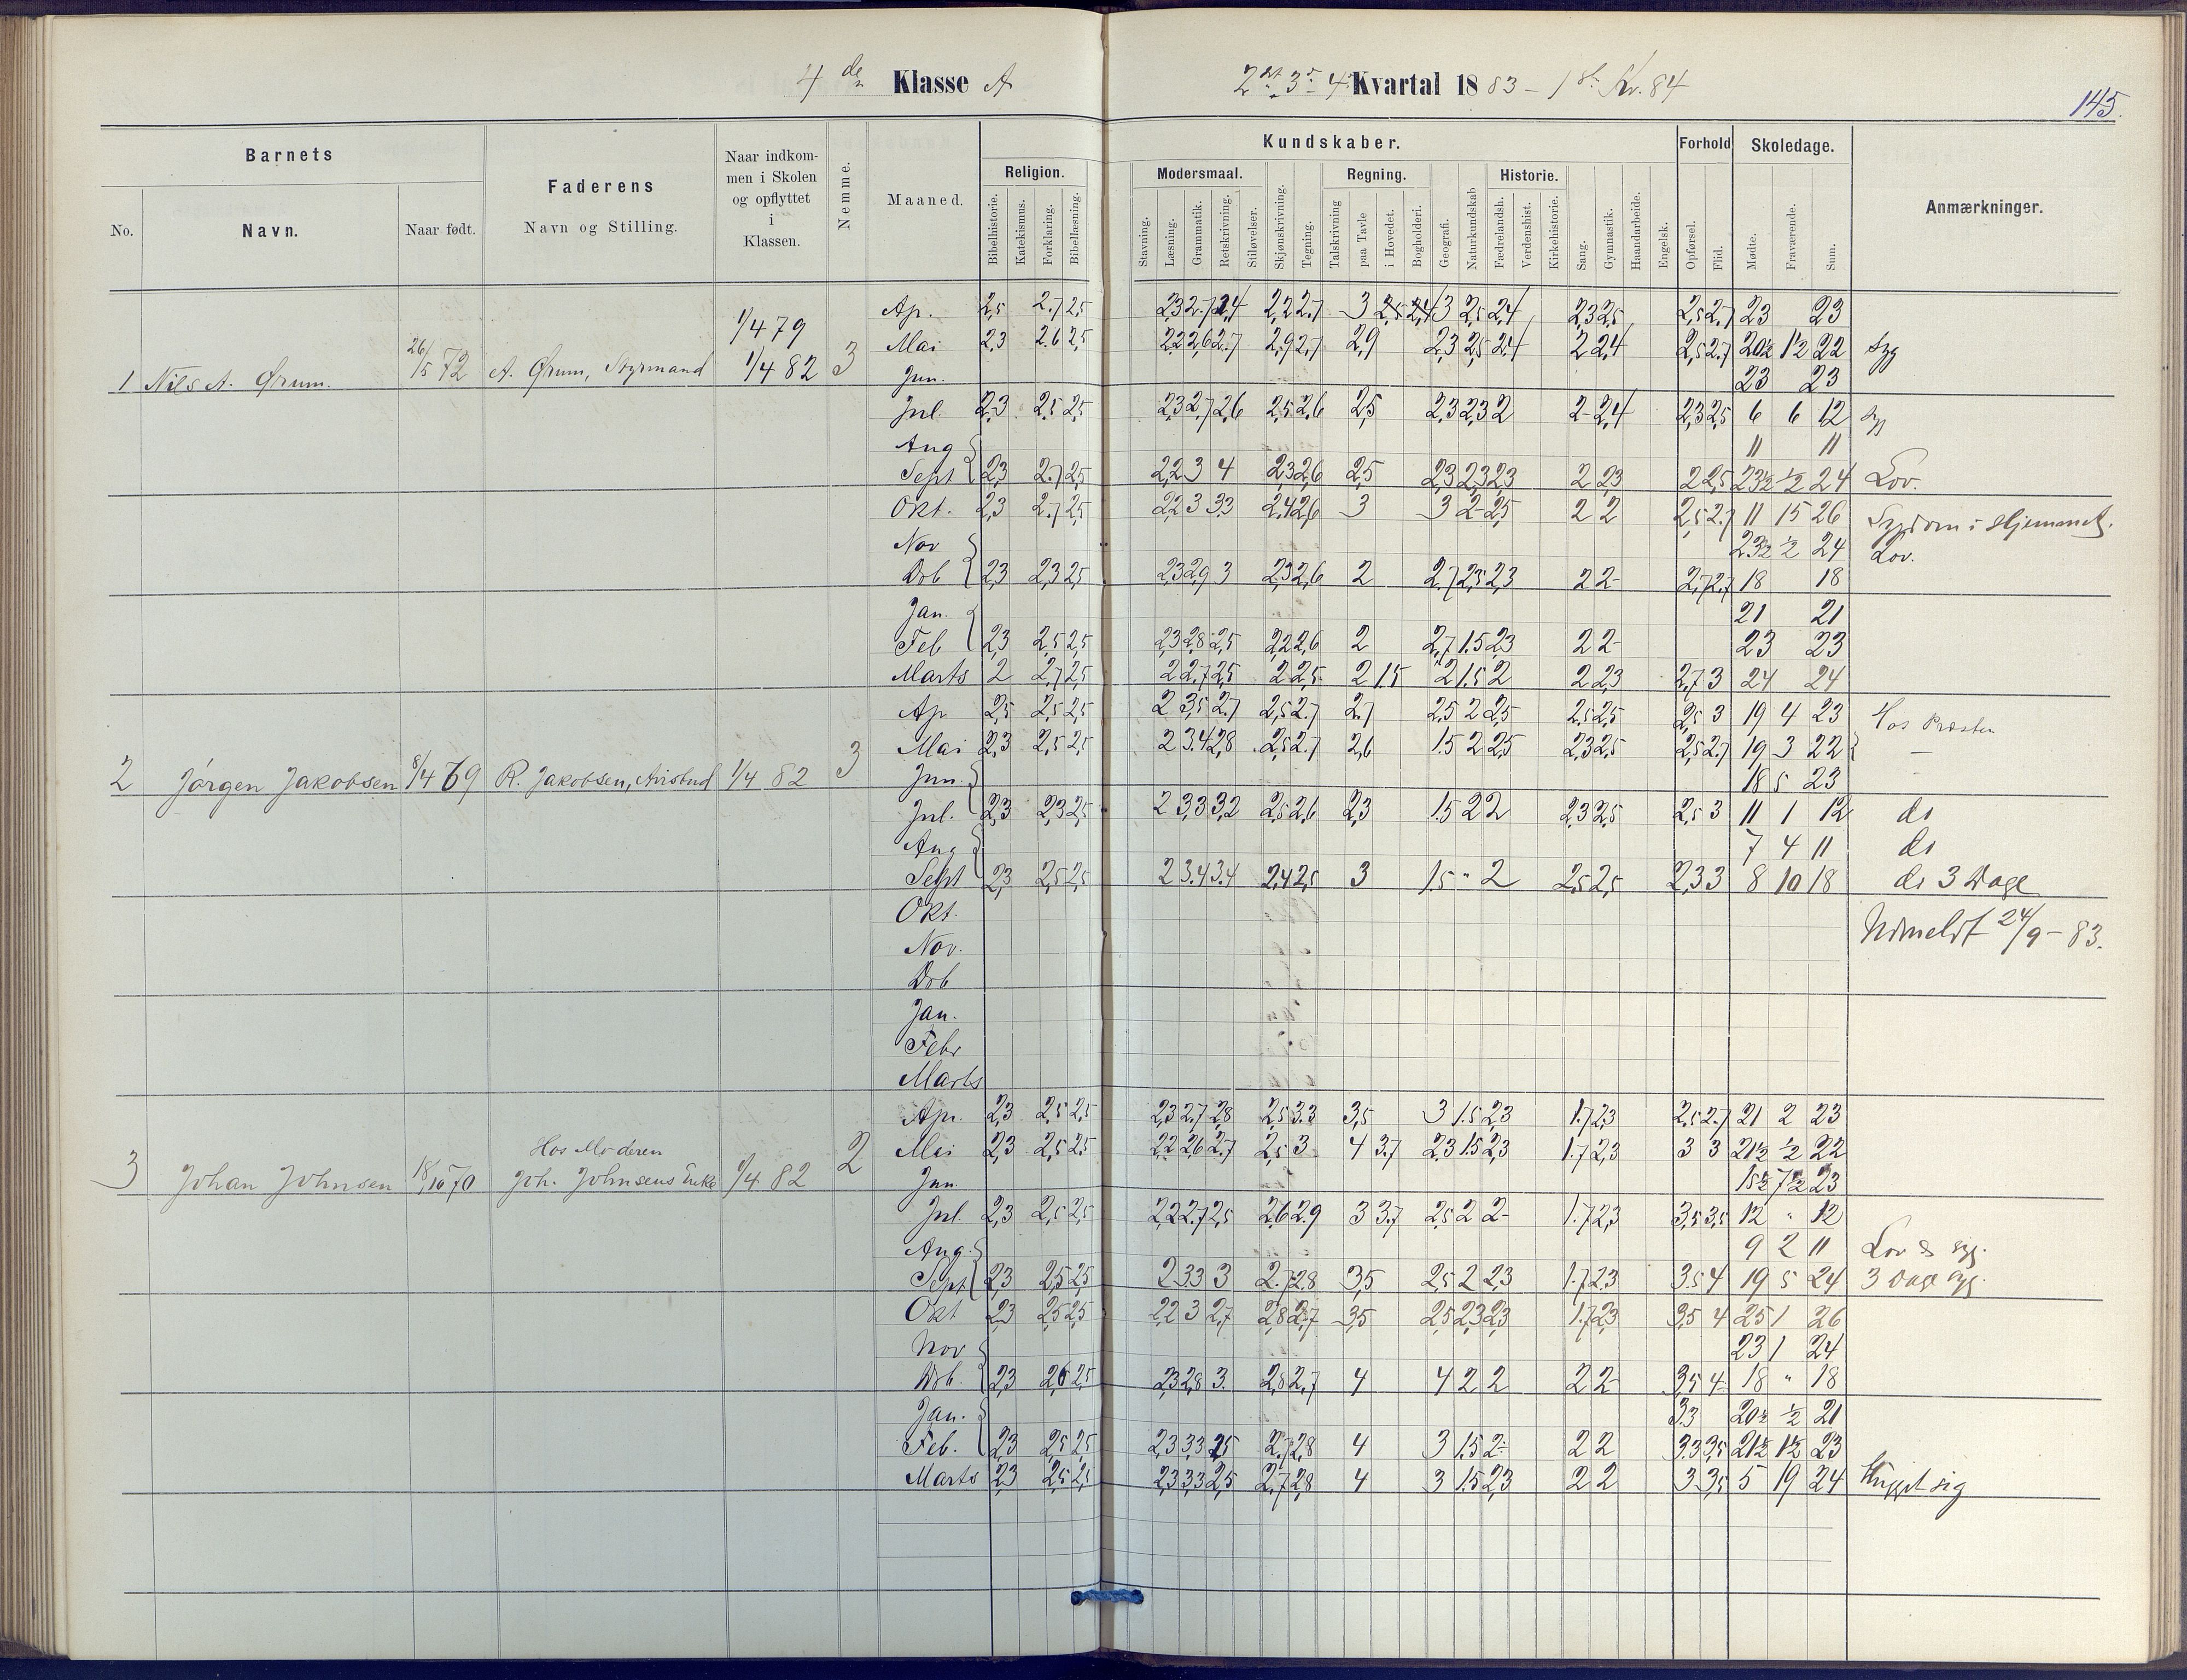 4de Klasse A
2det 3die 4 Kvartal 1883 – 1ste Kv. 84
145.
Barnets
No.
Navn.
Naar født.
Faderens
Navn og Stilling.
Naar indkom-
men i Skolen
og opflyttet
i
Klassen.
Nemme.
Maaned.
Kundskaber.
Religion.
Bibelhistorie.
Katekismus.
Forklaring.
Bibellæsning.
Modersmaal.
Stavning.
Læsning.
Grammatik.
Retskrivning.
Stiløvelser.
Skjønskrivning.
Tegning.
Regning.
Talskrivning
paa Tavle
i Hovedet.
Bogholderi.
Geografi.
Naturkundskab
Historie.
Fædrelandsh.
Verdenshist.
Kirkehistorie.
Sang.
Gymnastik.
Haandarbeide.
Engelsk.
Forhold
Opførsel.
Flid.
Skoledage.
Mødte.
Fraværende.
Sum.
Anmærkninger.
1 Nils A. Ørum. 26/5 72 A. Ørum, Styrmand 1/4 79 1/4 82 3
Ap. 2,5 2.7 2,5 2,3 2.7 2,4 2,2 2.7 3 2,5 2,4 3 2,5 2,4 2,3 2,5 2,5 2.7 23 23
Mai 2,3 2.6 2,5 2,2 2,6 2.7 2,9 2,7 2,9 2,3 2,5 2,4 2 2,4 2,5 2.7 20½ 1½ 22 Syg
Jun. 23 23
Jul. 2,3 2,5 2,5 2,3 2,7 2,6 2,5 2,6 2,5 2,3 2,3 2 2 2,4 2,3 2,5 6 6 12 Syg
Aug 11 11
Sept 2,3 2.7 2,5 2,2 3 4 2,3 2,6 2,5 2,3 2,3 2,3 2 2,3 2 2,5 23½ ½ 24 Lov.
Okt. 2,3 2.7 2,5 2,2 3 3,3 2,4 2,6 3 3 2 2,5 2 2 2,5 2.7 11 15 26 Sygdom i Hjemmet.
Nov 23½ ½ 24 Lov.
Dcb 2,3 2,3 2,5 2,3 2,9 3 2,3 2,6 2 2.7 2,5 2,3 2 2 2,7 2,7 18 18
Jan. 21 21
Feb 2,3 2,5 2,5 2,3 2,8 2,5 2,2 2,6 2 2,7 1.5 2,3 2 2 23 23
Marts 2 2,7 2,5 2 2,7 2,5 2 2,5 2 1.5 2 1.5 2 2 2,3 2,7 3 24 24
2 Jörgen Jakobsen 8/4 69 R. Jakobsen, Avisbud 1/4 82 3
Ap 2,5 2,5 2,5 2 3,5 2.7 2,5 2.7 2.7 2,5 2 2,5 2,5 2,5 2,5 3 19 4 23 Hos Præsten
Mai 2,3 2,5 2,5 2 3.4 2,8 2,5 2.7 2,6 1.5 2 2,5 2,3 2,5 2,5 2.7 19 3 22 —
Jun. 18 5 23 –
Jul. 2,3 2,3 2,5 2 3,3 3,2 2,5 2,6 2,3 1.5 2 2 2,3 2,5 2,5 3 11 1 12 do
Aug 7 4 11 do
Sept 2,3 2,5 2,5 2 3.4 3.4 2,4 2,5 3 1.5 " 2 2,5 2,5 2,3 3 8 10 18 do 3 Dage
Okt.
Udmeldt 24/9 – 83.
Nov.
Dcb
Jan.
Febr
Marts
3 Johan Johnsen 18/10 70 Hos Moderen
Joh. Johnsens Enke 1/4 82 2
Apr. 2,3 2,5 2,5 2,3 2,7 2,8 2,5 3.3 3,5 3 1.5 2,3 1.7 2,3 2,5 2.7 21 2 23
Mai 2,3 2,5 2,5 2,2 2,6 2.7 2,5 3 4 3.7 2,3 1.5 2,3 1.7 2,3 3 3 21½ ½ 22
Jun. 15½ 7½ 23
Jul. 2,3 2,5 2,5 2,2 2.7 2,5 2,6 2,9 3 3.7 2,5 2 2 1.7 2,3 3,5 3,5 12 " 12
Aug. 9 2 11 Lov & syg.
Sept 2,3 2,5 2,5 2 3.3 3 2.7 2,8 3,5 2,5 2 2,3 1.7 2,3 3.5 4 19 5 24 3 Dage syg.
Okt 2,3 2,5 2,5 2,2 3 2,7 2,8 2,7 3,5 2,5 2,3 2,3 1.7 2,3 3,5 4 25 1 26
Nov 23 1 24
Dcb. 2,3 2,6 2,5 2,3 2,8 3. 2,8 2,7 4 4 2 2 2 2 3,5 4 18 " 18
Jan. 3.3 20½ ½ 21
Feb. 2,3 2,5 2,5 2,3 3.3 2,5 2.7 2,8 4 3 1.5 2 2 2 3.3 3,5 21½ 1½ 23
Marts 2,3 2,5 2,5 2,3 3.3 2,5 2,7 2,8 4 3 1.5 2,3 2 2 3 3,5 5 19 24 Hugget sig